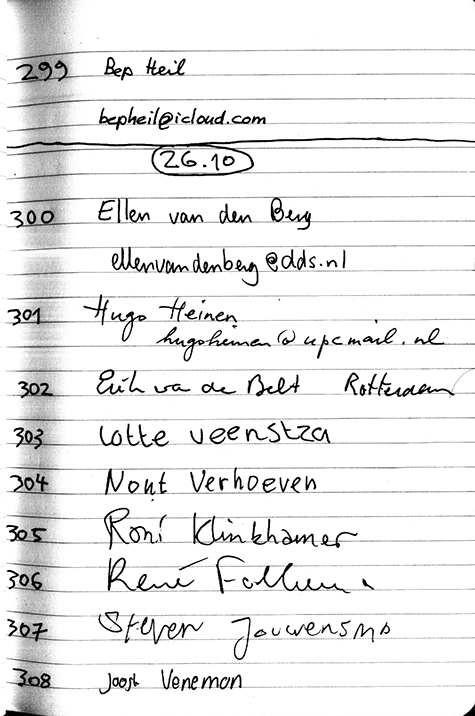 299 Bep Heil
bepheil@icloud.com
26.10
300 Ellen van den Berg
ellenvandenberg@dds.nl
301 Hugo Heinen
hugoheinen@upcmail.nl
302 Erik va de Belt Rotterdam
303 Lotte veenstra
304 Nout Verhoeven
305 Roni Klinkhamer
306 René
307 Steven
308 Joost Veneman